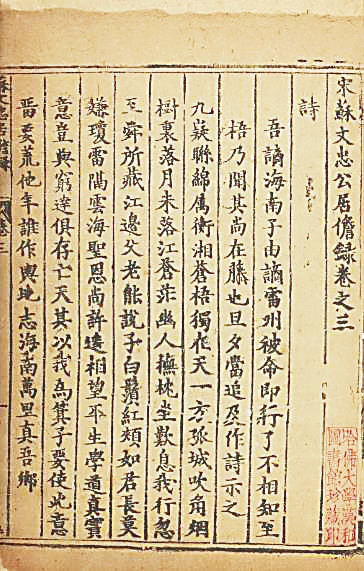 宋蘇文忠公居儋錄卷之三
詩
吾謫海南子由謫雷州被命即行了不相知至
梧乃聞其尚在藤也旦夕當追及作詩示之
九疑聯綿屬衡湘蒼梧獨在天一方孤城吹角煙
樹裏落月未落江蒼茫幽人撫枕坐歎息我行忽
至舜所藏江邊父老能說子白鬚紅頰如君長莫
嫌瓊雷隔雲海聖恩尚許遙相望平生學道真實
意豈與窮達俱存亡天其以我為箕子要使此意
畱要荒他年誰作輿地志海南萬里真吾鄉
哈佛大學漢和
圖書館珍藏印